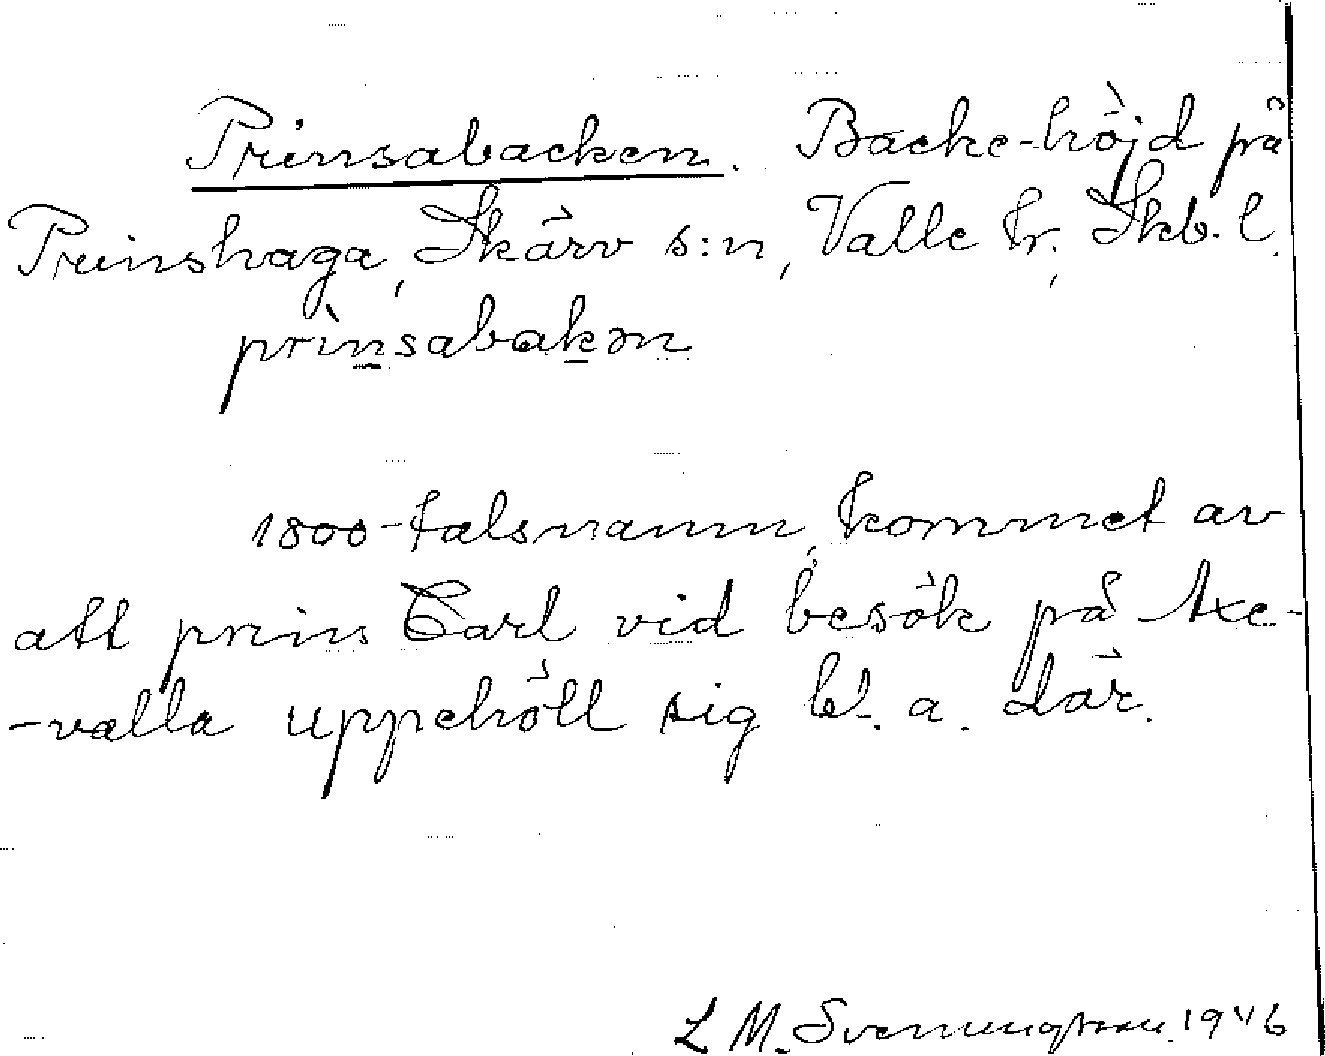 Prinsabacken. Backe-höjd på
Prinshaga, Skärv s:n, Valle hr., Skb. l.
prìnsabakən
1800-talsnamn, kommet av
att prins Carl vid besök på Axe-
-valla uppehöll sig bl. a. där.
L M. Svenungsson. 1946